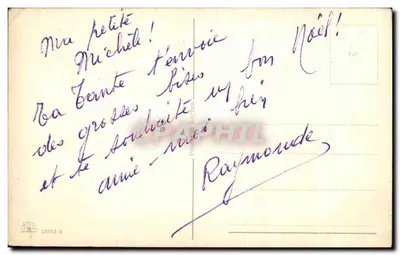 Ma petite
Michèle !
Ta Tante t'envoie
des grosses bises
et te souhaite un bon Noël !
aime-moi bien
Raymonde